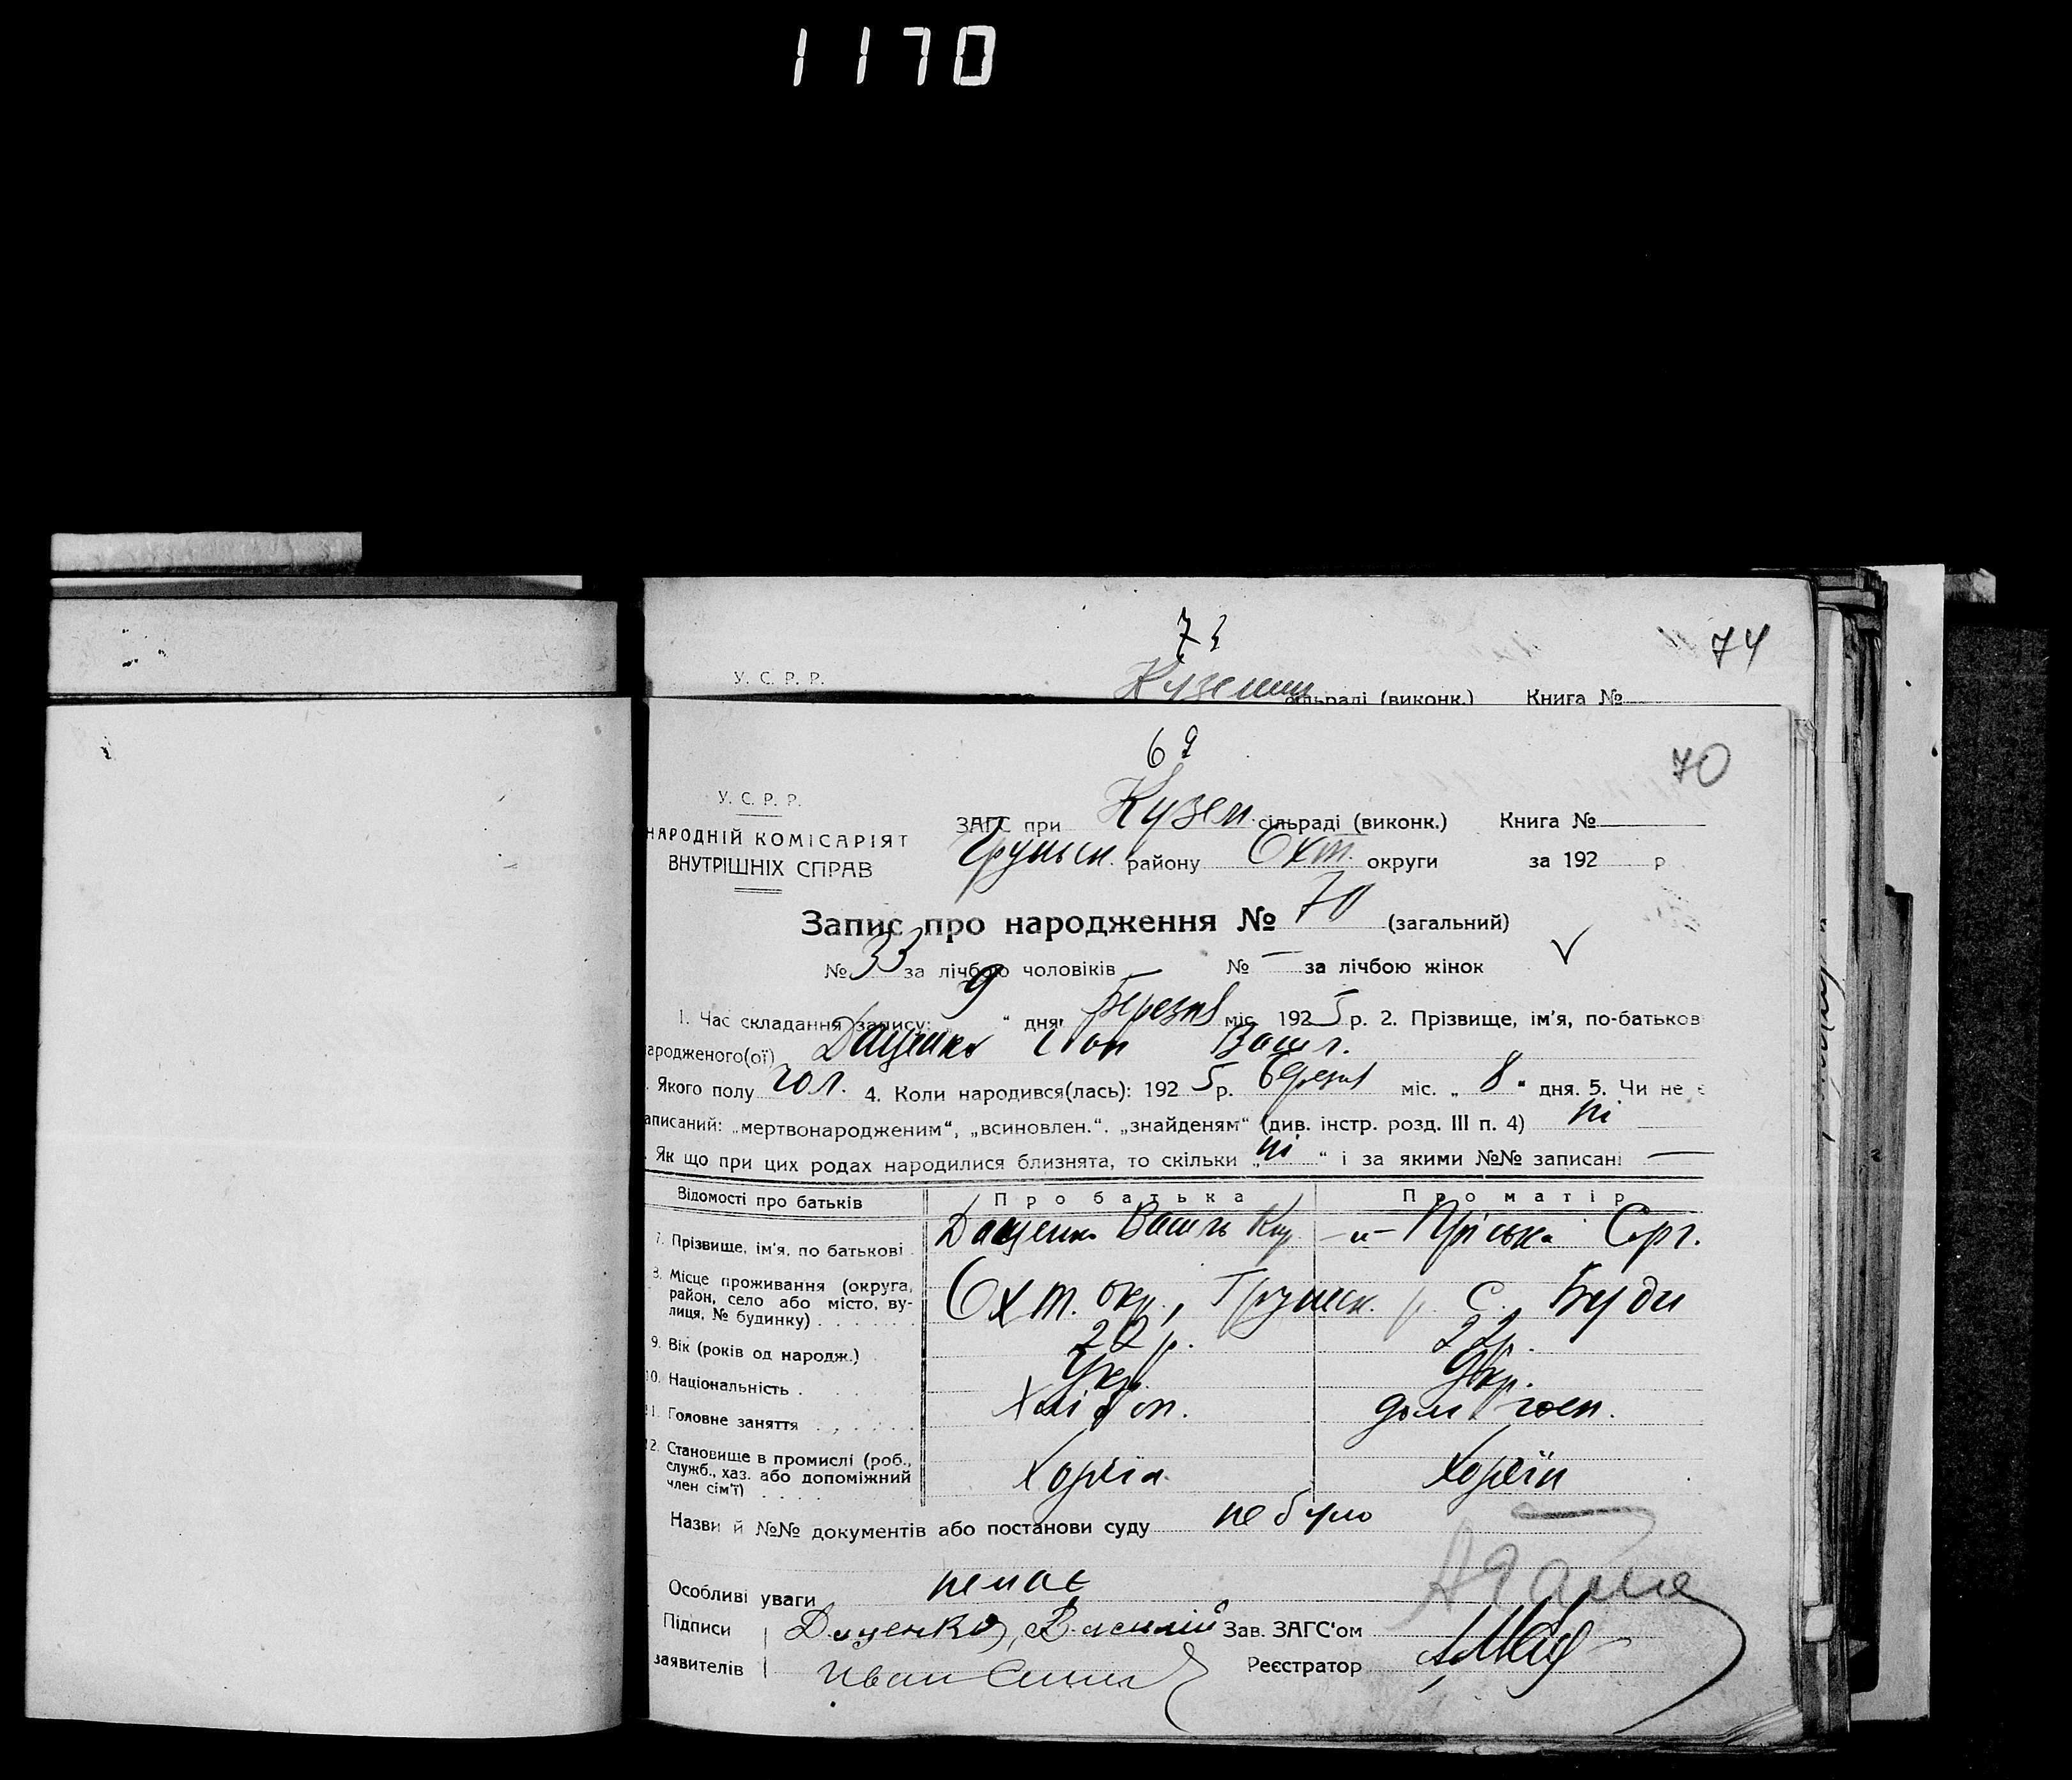 1170
73
74
У. С. Р. Р.
Кузенин сільраді (виконк.) Книга №
69
70
У. С. Р. Р.
НАРОДНІЙ КОМІСАРІЯТ
ВНУТРІШНІХ СПРАВ
ЗАГС при Кузем. сільраді (виконк.) Книга №
Груньск. району Охт. округи за 192 р
Запис про народження № 70 (загальний)
№ 33 за лічбою чоловіків № — за лічбою жінок
1. Час складання запису: „ 9 “ дня березня міс. 1925 р. 2. Прізвище, ім'я, по-батьков
ародженого(ої) Даценко Іван Васил.
. Якого полу чол. 4. Коли народився(лась): 1925 р. березня міс. „ 8 “ дня. 5. Чи не є
аписаний: „мертвонародженим“, „всиновлен.“. „знайденям“ (див. інстр. розд. III п. 4) ні
. Як що при цих родах народилися близнята, то скільки „ ні “ і за якими №№ записані —
Відомості про батьків Про батька Про матір
7. Прізвище, ім'я, по батькові . Даценко Василь –„– Пріська Серг.
8. Місце проживання (округа, район, село або місто, вулиця, № будинку) . . . . . . Охт. окр., Груньск. р. с. Буди
9. Вік (років од народж.) 22 р. 22 р.
10. Національність . . . . Укр. Укр.
11. Головне заняття . . . . . . Хлібор. дом. госп.
12. Становище в промислі (роб., служб., хаз. або допоміжний член сім'ї) . . . .
Назви й №№ документів або постанови суду не було
Особливі уваги немає
Підписи Даценко, Василий Зав. ЗАГС'ом
заявителів Иван Реєстратор